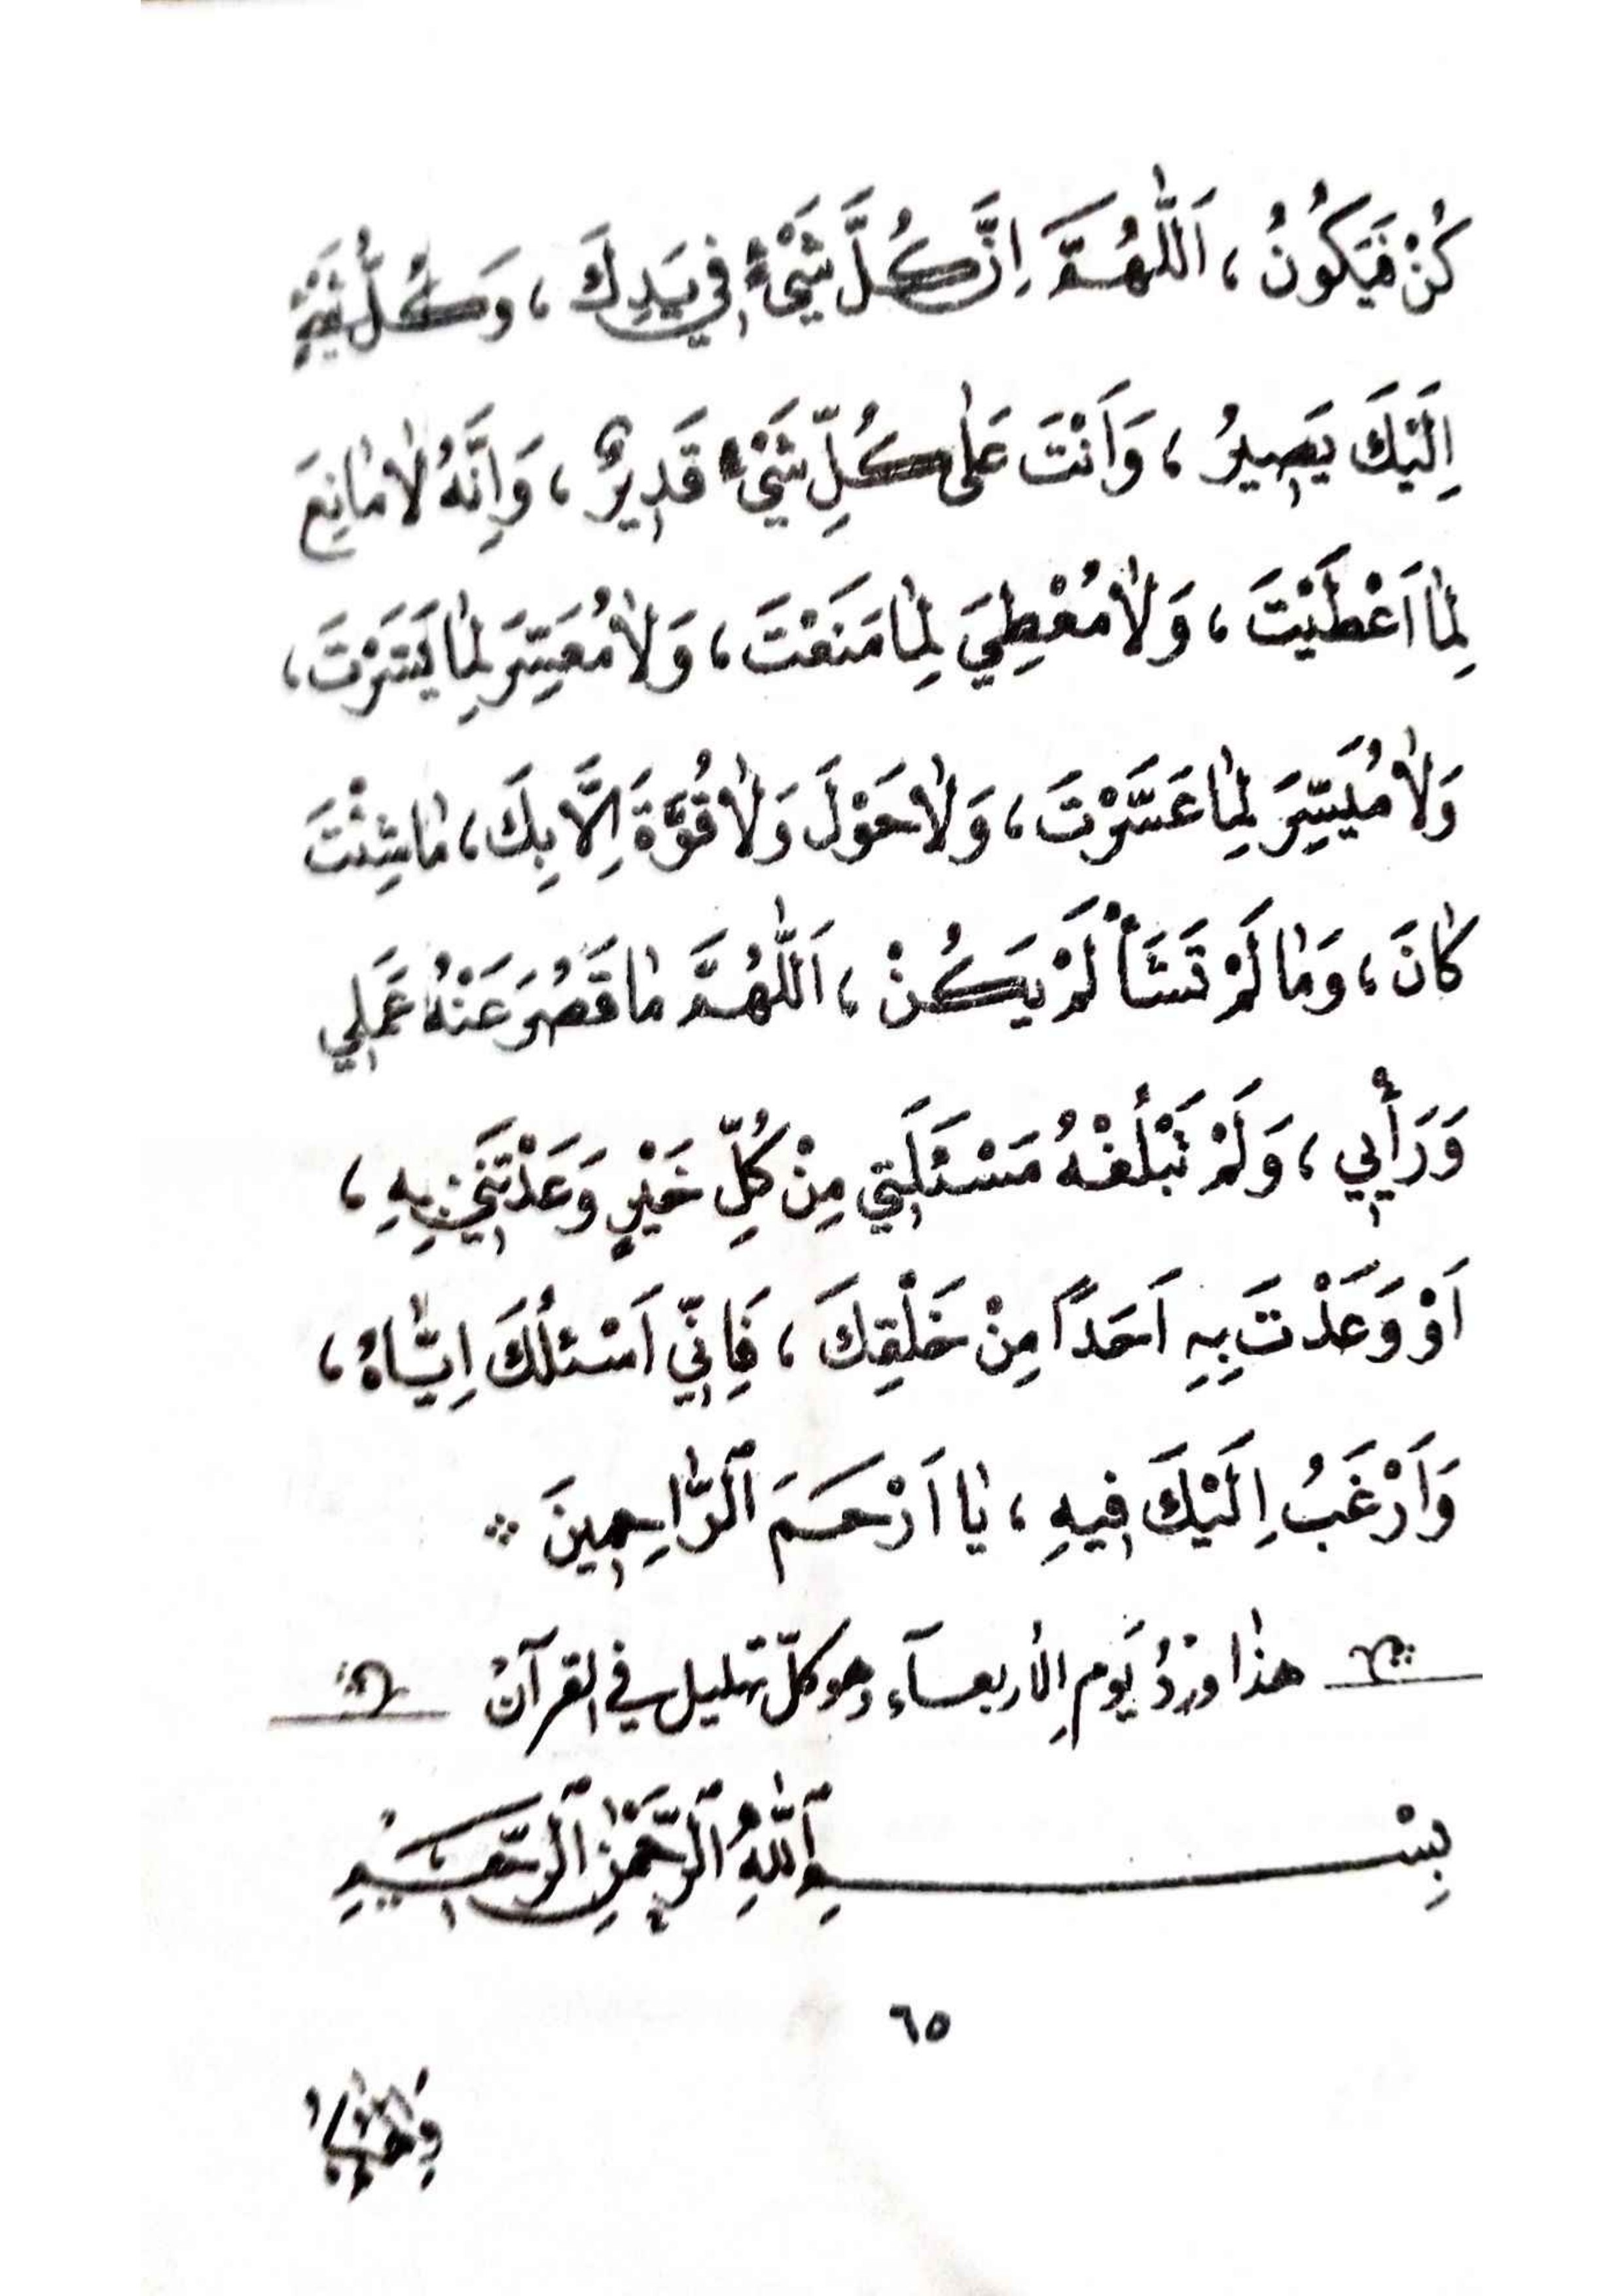 كُنْ فَيَكُونُ ، اَللّٰهُمَّ اِنَّ كُلَّ شَيْءٍ فِي يَدِكَ ، وَكُلُّ شَيْءٍ
اِلَيْكَ يَصِيرُ ، وَاَنْتَ عَلٰى كُلِّ شَيْءٍ قَدِيرٌ ، وَاِنَّهُ لٰا مٰانِعَ
لِمٰا اَعْطَيْتَ ، وَلٰا مُعْطِيَ لِمٰا مَنَعْتَ ، وَلٰا مُعَسِّرَ لِمٰا يَسَّرْتَ ،
وَلٰا مُيَسِّرَ لِمٰا عَسَّرْتَ ، وَلٰا حَوْلَ وَلٰا قُوَّةَ اِلَّا بِكَ ، مٰا شِئْتَ
كٰانَ ، وَمٰا لَمْ تَشَأْ لَمْ يَكُنْ ، اَللّٰهُمَّ مٰا قَصُرَ عَنْهُ عَمَلِي
وَرَأْيِي ، وَلَمْ تَبْلُغْهُ مَسْئَلَتِي مِنْ كُلِّ خَيْرٍ وَعَدْتَنِي بِهِ ،
اَوْ وَعَدْتَ بِهِ اَحَدًا مِنْ خَلْقِكَ ، فَاِنِّي اَسْئَلُكَ اِيّٰاهُ ،
وَاَرْغَبُ اِلَيْكَ فِيهِ ، يٰا اَرْحَمَ ٱلرّٰاحِمِينَ ∴
هذٰا وِرْدُ يَومِ الأربعآءِ وهو كلّ تهليل في القرآن
بِسْمِ ٱللّٰهِ ٱلرَّحْمٰنِ ٱلرَّحِيمِ
٦٥